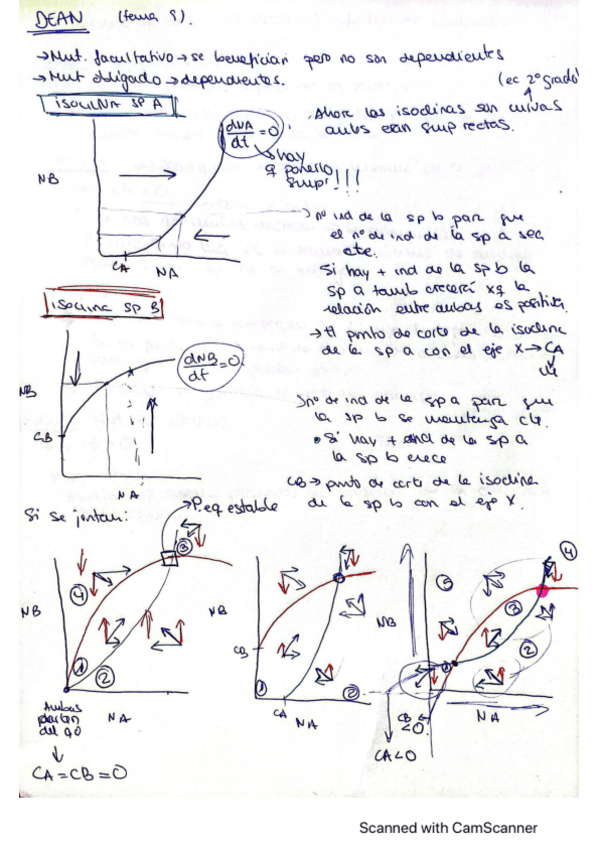 DEAN (tema 9).
→ Mut. facultativo → se benefician pero no son dependientes
→ Mut obligado → dependientes.
(ec 2º grado)
ISOCLINA SP A
Ahora las isoclinas son curvas
antes eran siempre rectas.
dNA/dt = 0
hay
q ponerlo
siempre!!!
NB
CA
NA
nº ind de la sp b para que
el nº de ind de la sp a sea
cte.
Si hay + ind de la sp b la
sp a tamb crecerá xq la
relación entre ambas es positiva.
ISOCLINA SP B
→ El punto de corte de la isoclina
de la sp a con el eje X → CA
dNB/dt = 0
NB
CB
NA
nº de ind de la sp a para que
la sp b se mantenga cte.
• Si hay + ind de la sp a
la sp b crece
CB → punto de corte de la isoclina
de la sp b con el eje X.
Si se juntan:
P. eq. estable
NB
1
2
3
4
NA
Ambas
parten
del 0
CA = CB = 0
NB
CB
1
2
CA
NA
NB
5
3
4
2
1
CB
<0
NA
CA<0
Scanned with CamScanner